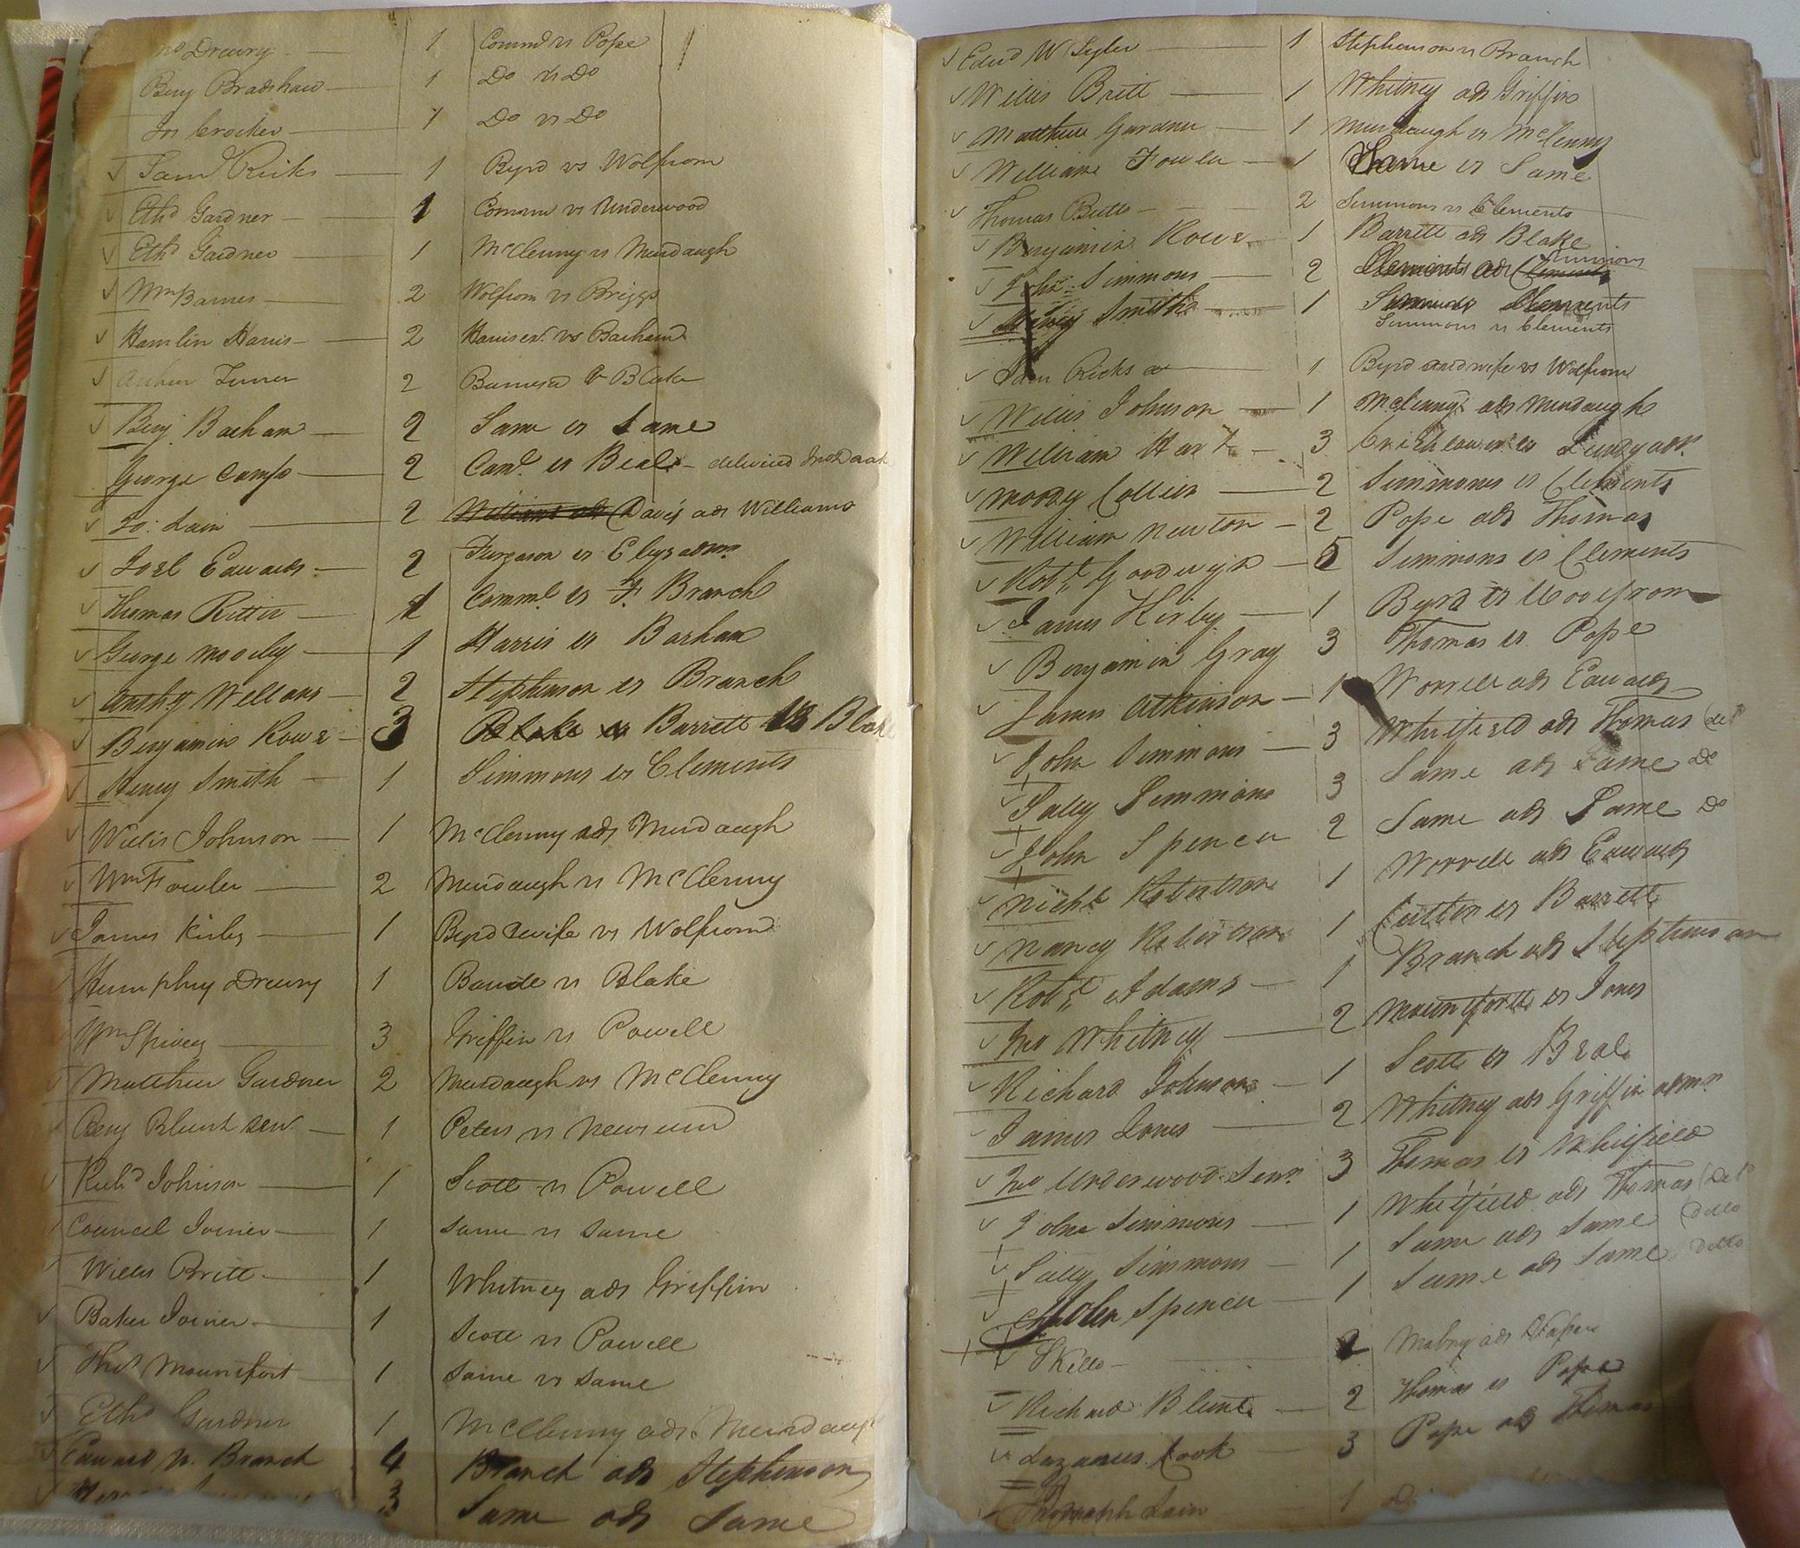 Drewry — 1 Commd vs Pope
Benj Bradshaw — 1 Do vs Do
Jas Crocker — 1 Do vs Do
Saml Ricks — 1 Byrd vs Wolfrom
Ethd Gardner — 1 Comm vs Underwood
Ethd Gardner — 1 McClenny vs Murdaugh
Wm Barnes — 2 Wolfrom vs Briggs
Hamlin Harris — 2 Harris exr vs Barham
Arthur Turner 2 Blake
Benj Barham — 2 Same vs Same
George Camp — 2 Comd vs Beal — delivered
Jo: Lain — 2 Williams ads Davis ads Williams
Joel Edwards — 2 Furgason vs Elys admr
Thomas Ritter — 1 Commd vs F. Branch
George Moody — 1 Harris vs Barham
Anthy Willans — 2 Stephenson vs Branch
Benjamin Rowe — 3 Blake vs Barrett vs Blake
Henry Smith — 1 Simmons vs Clements
Willis Johnson — 1 McClenny ads Murdaugh
Wm Fowler — 2 Murdaugh vs McClenny
James Kirby — 1 Byrd & wife vs Wolfrom
Humphry Drewry 1 vs Blake
Wm Spivey — 3 Griffin vs Powell
Matthew Gardner 2 Murdaugh vs McClenny
Benj Blunt Senr — 1 Peters vs Newsum
Richd Johnson — 1 Scott vs Powell
Council Joiner — 1 same vs same
Willis Britt — 1 Whitney ads Griffin
Baker Joiner — 1 Scott vs Powell
Thos Mountfort — 1 same vs same
Ethd Gardner 1 McClenny ads Murdaugh
Edward W. Branch 4 Branch ads Stephenson
3 Same ads Same
Edwd W Sigler — 1 Stephenson vs Branch
Willis Britt — 1 Whitney ads Griffin
Matthew Gardner — 1 Murdaugh vs McClenny
William Fowler — 1 Same vs Same
Thomas Butts — 2 Simmons vs Clements
Benjamin Rowe — 1 Barrett ads Blake
John Simmons — 2 Clements ads Clements Simmons
Henry Smith — 1 Simmons Clements
Simmons vs Clements
Sam Ricks — 1 Byrd and wife vs Wolfrom
Willis Johnson — 1 McClenny ads Murdaugh
William Hart — 3 Crichlow vs admr
Moody Collier — 2 Simmons vs Clements
William Newton — 2 Pope ads Thomas
Robt Goodwyn — 5 Simmons vs Clements
James Kirby — 1 Byrd vs Woolfrom
Benjamin Gray 3 Thomas vs Pope
James Atkinson — 1 Worrell ads Edwards
John Simmons — 3 Whitfield ads Thomas
Sally Simmons 3 Same ads Same Do
John Spencer 2 Same ads Same Do
Nichs Robertson 1 Worrell ads Edwards
Nancy Robertson 1 Cutter vs Barrett
Robt Adams — 1 Branch ads Stephenson
Jno Whitney — 2 Mountfortt vs Jones
Richard Johnson — 1 Scott vs Beal
James Jones — 2 Whitney ads Griffin admr
Jno Underwood Senr 3 Thomas vs Whitfield
John Simmons — 1 Whitfield ads Thomas
Sally Simmons — 1 Same ads Same (ditto
John Spencer — 1 Same ads Same ditto
Skills — 2 ads
Richard Blunt — 2 Thomas vs Pope
Lazarus Cook — 3 Pope ads Thomas
Lain — 1